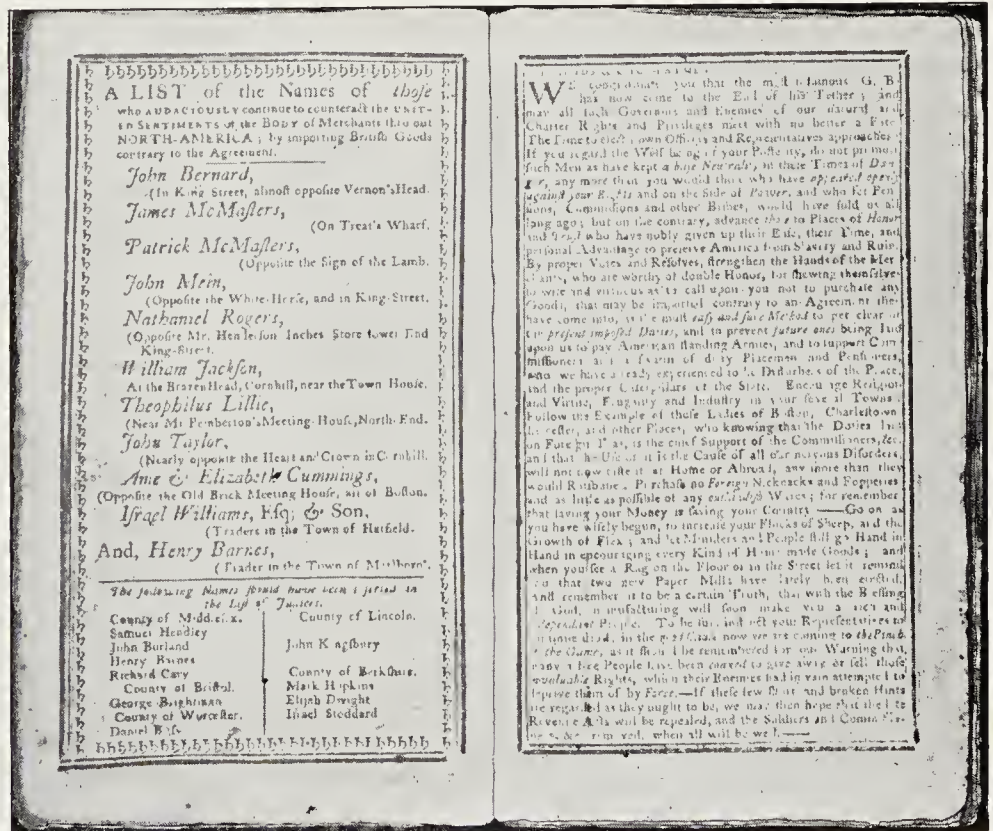 A LIST of the Names of thoſe
who AUDACIOUSLY continue to counteract the UNIT-
ED SENTIMENTS of the BODY of Merchants thro'out
NORTH-AMERICA; by importing Britiſh Goods
contrary to the Agreement.
John Bernard,
(In King Street, almoſt oppoſite Vernon's Head.
James McMaſters,
(On Treat's Wharf.
Patrick McMaſters,
(Oppoſite the Sign of the Lamb.
John Mein,
(Oppoſite the White-Horſe, and in King-Street.
Nathaniel Rogers,
(Oppoſite Mr. Henderſon Inches Store lower End
King-Street.
William Jackſon,
At the Brazen Head, Cornhill, near the Town Houſe.
Theophilus Lillie,
(Near Mr Pemberton's Meeting-Houſe, North-End.
John Taylor,
(Nearly oppoſite the Heart and Crown in Cornhill.
Ame & Elizabeth Cummings,
(Oppoſite the Old Brick Meeting Houſe, all of Boſton.
Iſrael Williams, Eſq; & Son,
(Traders in the Town of Hatfield.
And, Henry Barnes,
(Trader in the Town of Marlboro'.
The following Names ſhould have been inſerted in
the Liſt of Juſtices.
County of Middleſex.
Samuel Hendley
John Borland
Henry Barnes
Richard Cary
County of Briſtol.
George Brightman
County of Worceſter.
Daniel Bliſs
County of Lincoln.
John Kingſbury
County of Berkſhire.
Mark Hopkins
Elijah Dwight
Iſrael Stoddard
WE you that the G. B.
has now come to the End of his Tether; and
may all ſuch Governors and Enemies of our natural and
Charter Rights and Privileges meet with no better a Fate.
The Time to elect Town Officers and Repreſentatives approaches:
If you regard the Well being of your Poſterity, do not promote
ſuch Men as have kept a baſe Neutrality in theſe Times of Dan-
ger, any more than you would thoſe who have appeared openly
againſt your Rights and on the Side of Power, and who for Pen-
ſions, Commiſſions and other Bribes, would have ſold us all
long ago; but on the contrary, advance thoſe to Places of Honor
and Truſt who have nobly given up their Eaſe, their Time, and
perſonal Advantage to preſerve America from Slavery and Ruin.
By proper Votes and Reſolves, ſtrengthen the Hands of the Mer-
chants, who are worthy of double Honor, for ſhewing themſelves
ſo wiſe and virtuous as to call upon you not to purchaſe any
Goods, that may be imported contrary to an Agreement they
have come into, as the moſt eaſy and ſure Method to get clear of
the preſent impoſed Duties, and to prevent future ones being laid
upon us to pay American ſtanding Armies, and to ſupport Com-
miſſioners and a of dirty Placemen and Penſioners,
who we have already experienced to be Diſturbers of the Peace,
and the proper Caterpillars of the State. Encourage Religion
and Virtue, Frugality and Induſtry in your ſeveral Towns.
Follow the Example of thoſe Ladies of Boſton, Charleſtown
and other Places, who knowing that the Duties laid
on Foreign Teas, is the chief Support of the Commiſſioners, &c.
and that the Uſe of it is the Cauſe of all our nervous Diſorders,
will not now taſte it at Home or Abroad, any more than they
would Ratsbane. Purchaſe no Foreign Nicknacks and Fopperies
and as little as poſſible of any Wares; for remember
that ſaving your Money is ſaving your Country——Go on as
you have wiſely begun, to increaſe your Flocks of Sheep, and the
Growth of Flax; and let Miniſters and People ſtill go Hand in
Hand in encouraging every Kind of Home made Goods; and
when you ſee a Rag on the Floor or in the Street let it remind
you that two new Paper Mills have lately been erected,
and remember it to be a certain Truth, that with the Bleſſing
of God, manufacturing will ſoon make you a rich and
People. To be ſure inſtruct your Repreſentatives to
in the now we are coming to the Pinch
of the Game, as it ſhould be remembered for our Warning that
many a free People have been to give away or ſell thoſe
invaluable Rights, which their Enemies had in vain attempted to
deprive them of by Force.—If theſe few ſhort and broken Hints
are regarded as they ought to be, we may then hope that the late
Revenue Acts will be repealed, and the Soldiers and Commiſſio-
ners, &c. removed, when all will be well.——